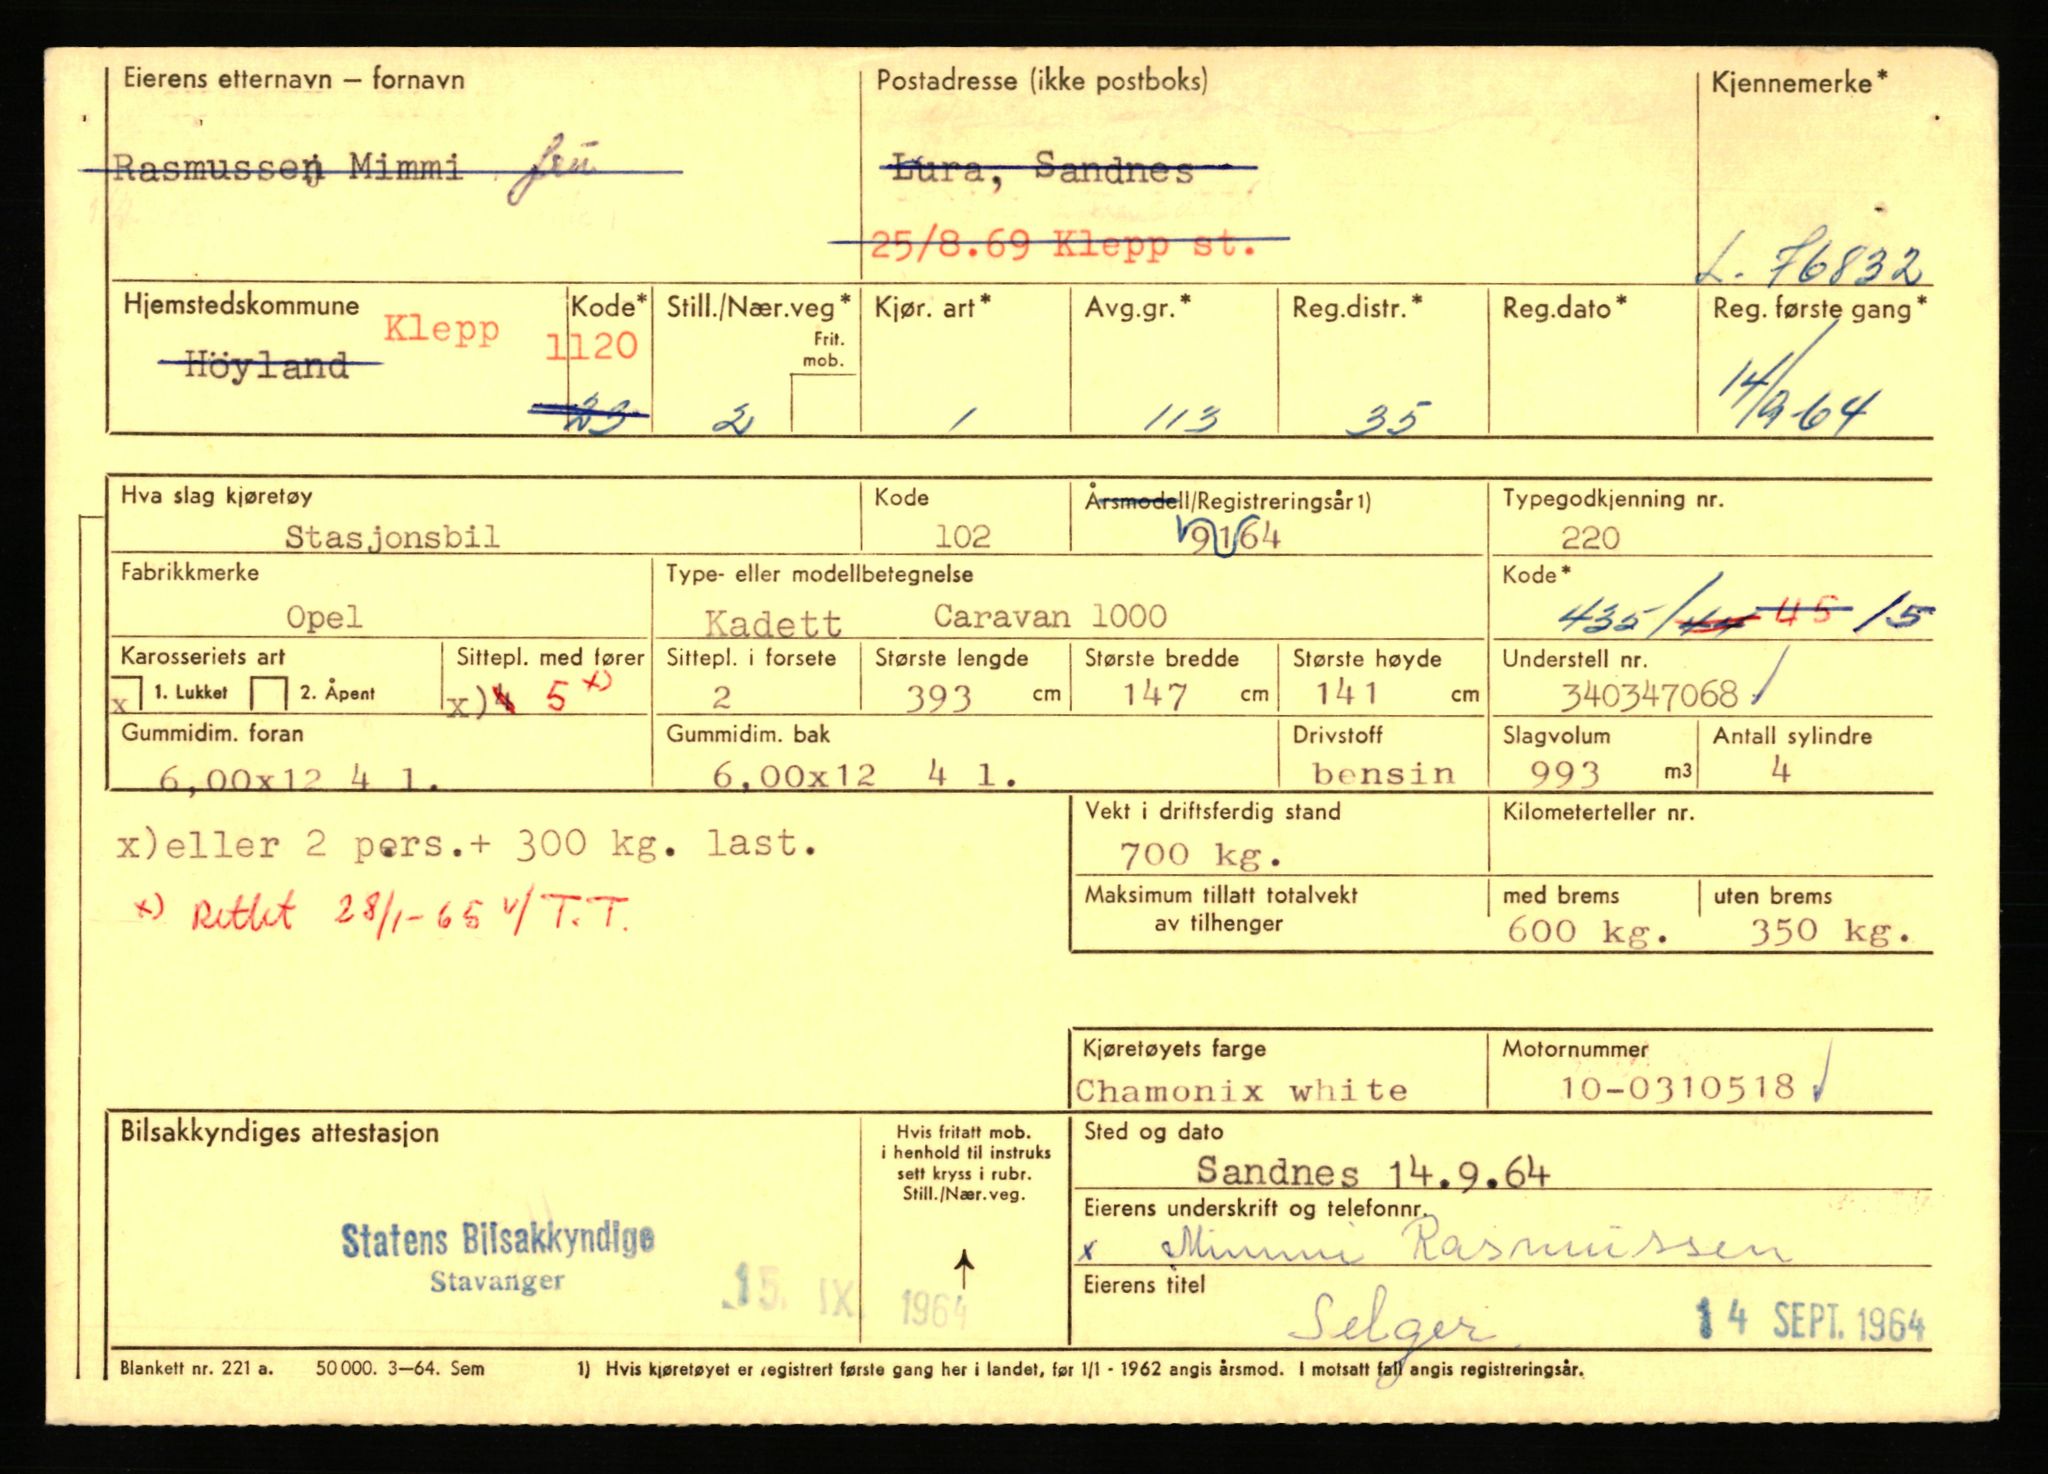 Eierens etternavn — fornavn
Postadresse (ikke postboks)
Kjennemerke*
Rasmussen Mimmi
Lura, Sandnes
25/8.69 Klepp st.
L. 76832
Hjemstedskommune
Kode*
Still./Nær.veg*
Frit. mob.
Kjør. art*
Avg.gr.*
Reg.distr.*
Reg.dato*
Reg. første gang*
Klepp 1120
Höyland
23
2
1
113
35
14/9-64
Hva slag kjøretøy
Kode
Årsmodell/Registreringsår1)
Typegodkjenning nr.
Stasjonsbil
102
9164
220
Fabrikkmerke
Type- eller modellbetegnelse
Kode*
Opel
Kadett Caravan 1000
435/44 45 /5
Karosseriets art
Sittepl. med fører
Sittepl. i forsete
Største lengde
Største bredde
Største høyde
Understell nr.
x 1. Lukket 2. Åpent
x)4 5 x)
2
393 cm
147 cm
141 cm
340347068
Gummidim. foran
Gummidim. bak
Drivstoff
Slagvolum
Antall sylindre
6,00x12 4 l.
6,00x12 4 l.
bensin
993 m3
4
Vekt i driftsferdig stand
Kilometerteller nr.
x)eller 2 pers.+ 300 kg. last.
700 kg.
x) Rettet 28/1-65 v/ T.T.
Maksimum tillatt totalvekt
av tilhenger
med brems
uten brems
600 kg.
350 kg.
Kjøretøyets farge
Motornummer
Chamonix white
10-0310518
Bilsakkyndiges attestasjon
Hvis fritatt mob.
i henhold til instruks
sett kryss i rubr.
Still./Nær.veg.
Sted og dato
Sandnes 14.9.64
Eierens underskrift og telefonnr.
x Mimmi Rasmussen
Statens Bilsakkyndige
Stavanger
15. IX. 1964
Eierens titel
Selger
14 SEPT. 1964
Blankett nr. 221 a. 50 000. 3—64. Sem
1) Hvis kjøretøyet er registrert første gang her i landet, før 1/1 - 1962 angis årsmod. I motsatt fall angis registreringsår.